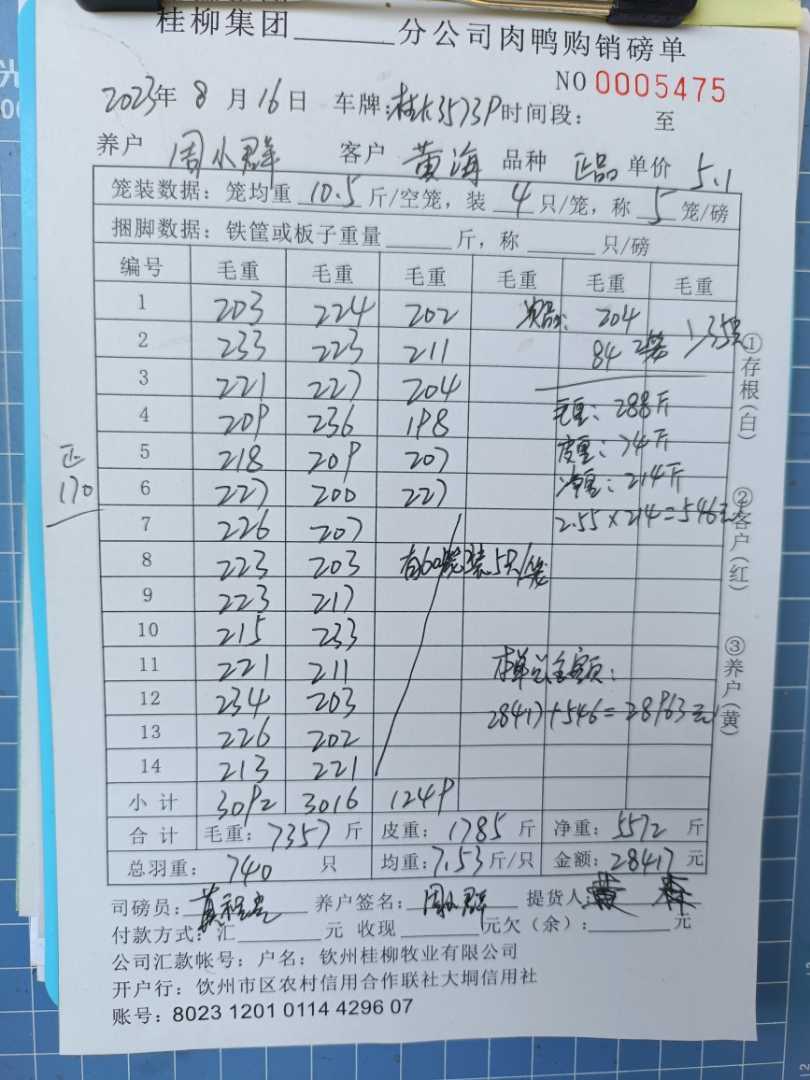 桂柳集团______分公司肉鸭购销磅单
NO 0005475
2023年 8 月 16 日 车牌:桂K3573P 时间段: 至
养户 周小群 客户 黄海 品种 正品 单价 5.1
笼装数据:笼均重 10.5 斤/空笼,装 4 只/笼,称 5 笼/磅
捆脚数据:铁筐或板子重量______斤,称______只/磅
编号 毛重 毛重 毛重 毛重 毛重 毛重
1 203 224 202 次品: 204
2 233 223 211 84 2笼 35只
3 221 227 204
4 209 236 198 毛重: 288斤
5 218 209 207 皮重: 74斤
6 227 200 227 净重: 214斤
7 226 207 2.55×214=546元
8 223 203 有60笼装5只/笼
9 223 217
10 215 233
11 221 211 本单总金额:
12 234 203 28417+546=28963元
13 226 202
14 213 221
小计 3092 3016 1249
合计 毛重: 7357 斤 皮重: 1785 斤 净重: 5572 斤
总羽重: 740 只 均重: 7.53 斤/只 金额: 28417 元
正
170
①存根(白)
②客户(红)
③养户(黄)
司磅员: 养户签名: 周小群 提货人:
付款方式:汇______元 收现______元欠(余):______元
公司汇款帐号:户名:钦州桂柳牧业有限公司
开户行:钦州市区农村信用合作联社大垌信用社
账号:8023 1201 0114 4296 07